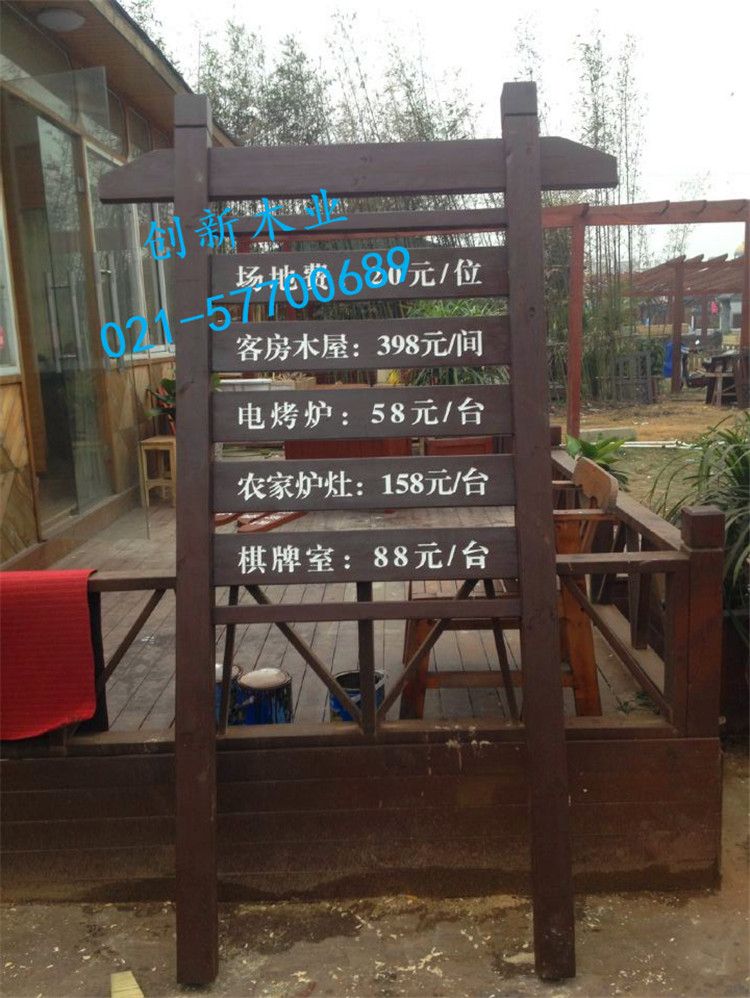 创新木业
021-57700689
场地费 20元/位
客房木屋：398元/间
电烤炉：58元/台
农家炉灶：158元/台
棋牌室：88元/台